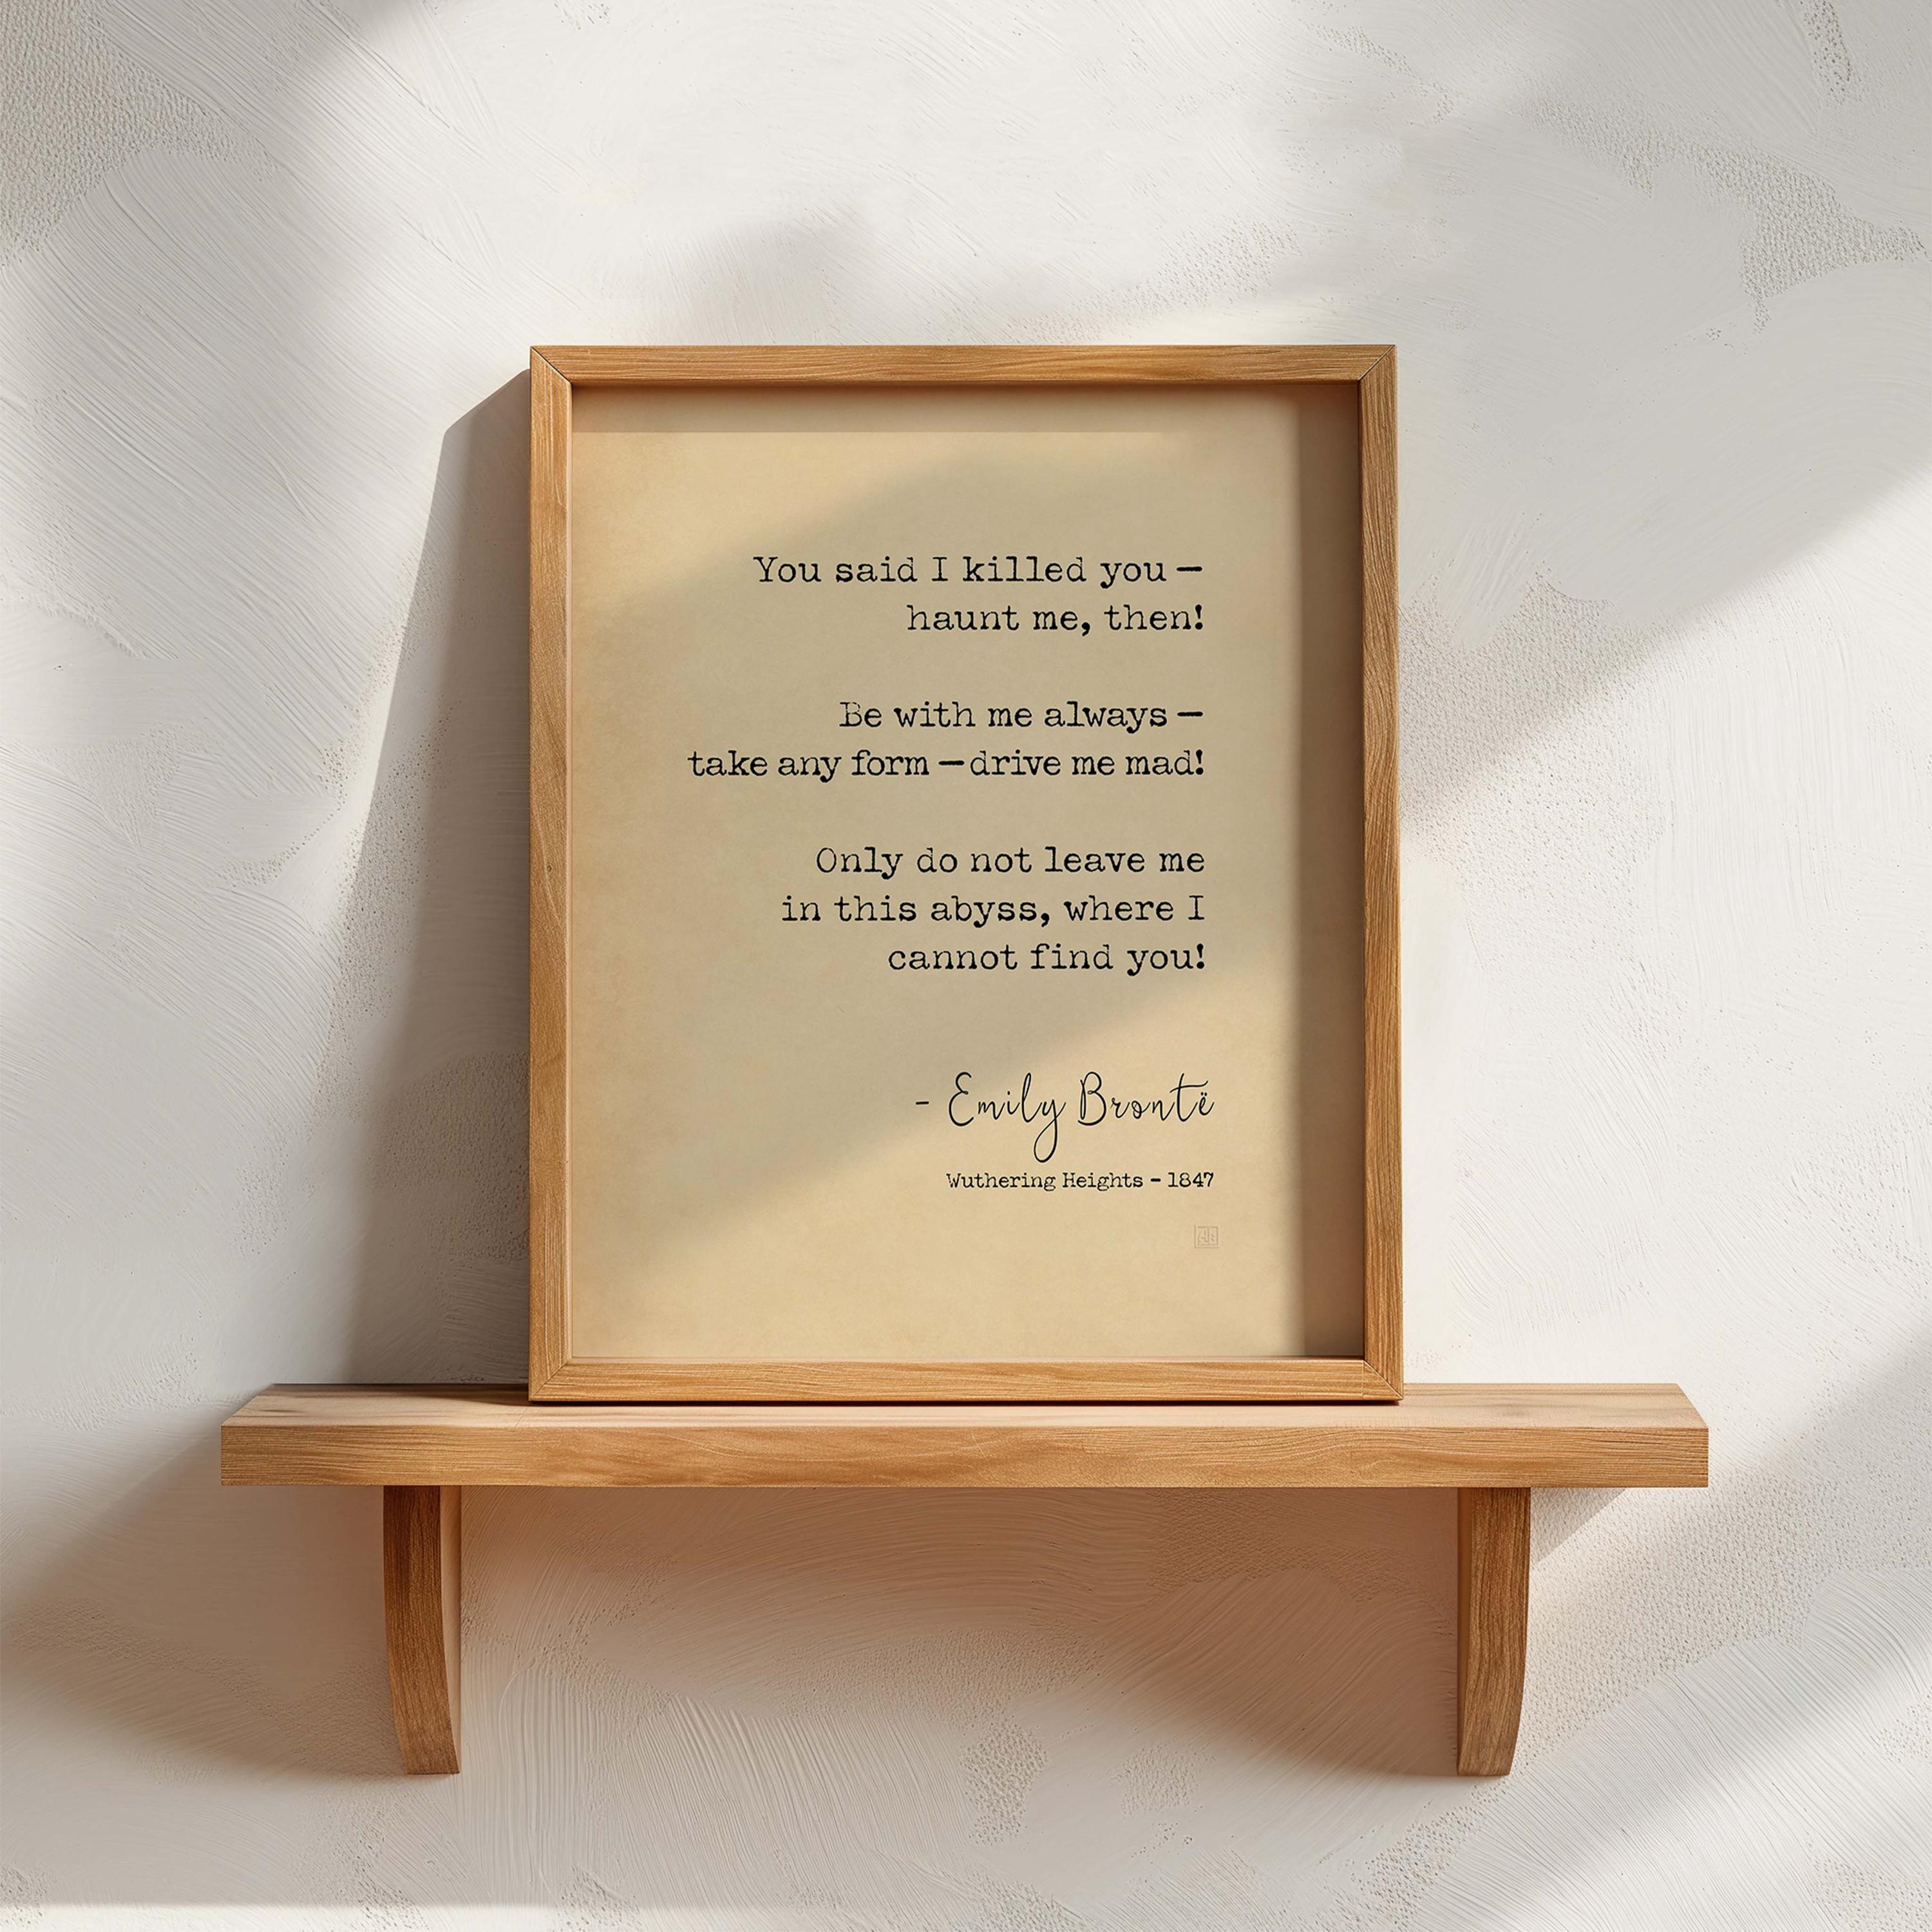 You said I killed you —
haunt me, then!
Be with me always —
take any form — drive me mad!
Only do not leave me
in this abyss, where I
cannot find you!
- Emily Brontë
Wuthering Heights - 1847